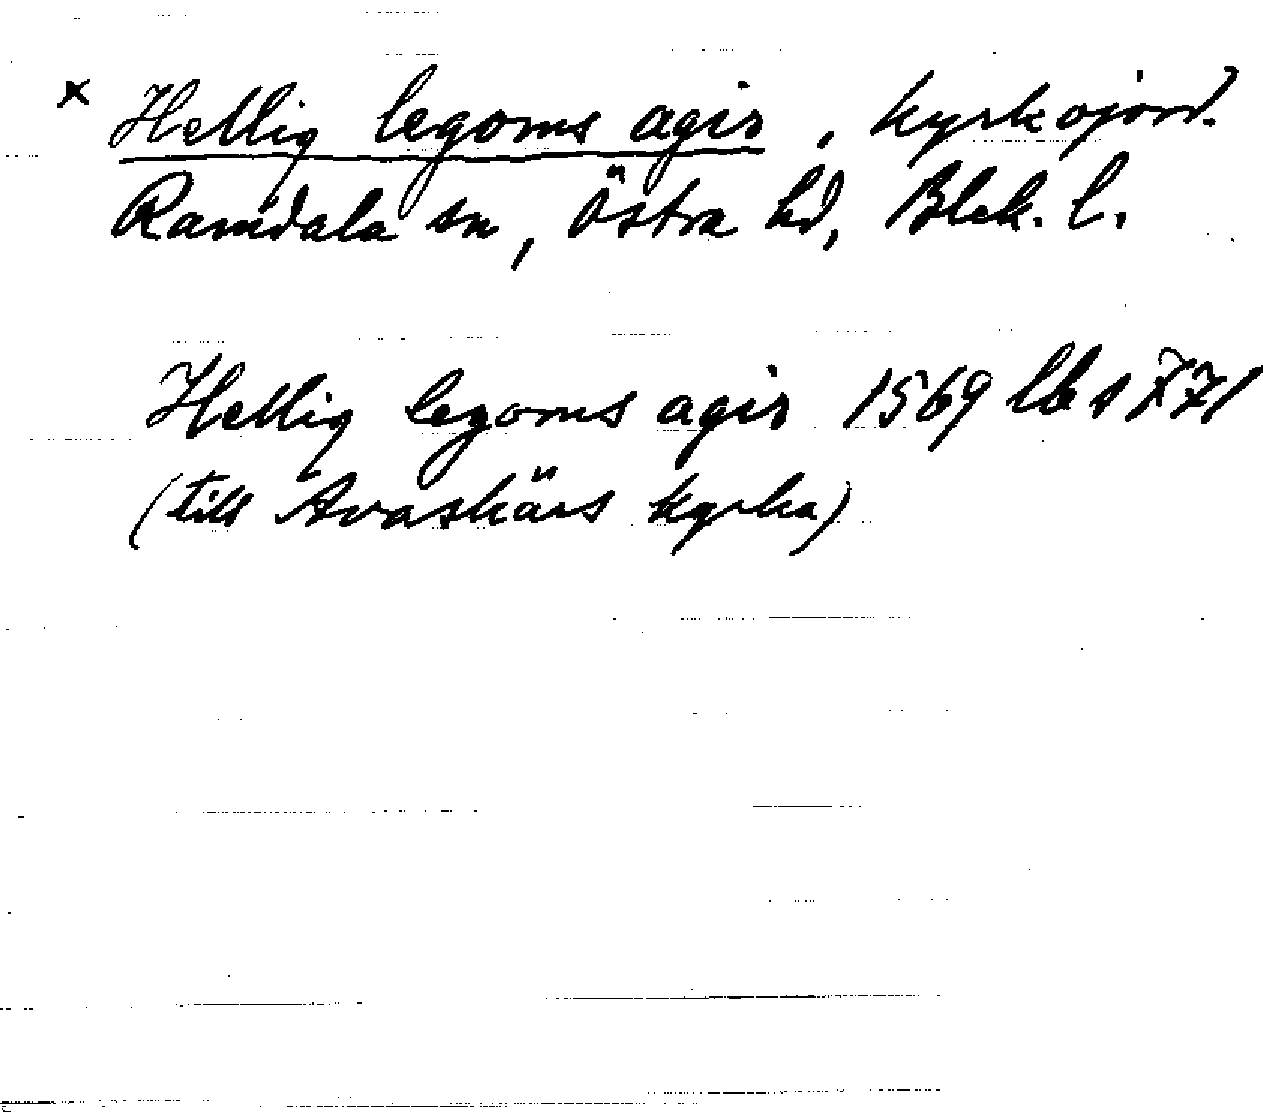 x Hellig legoms agir, kyrkojord.
Ramdala sn, Östra hd, Blek. l.
Hellig legoms agir 1569 lb s 771
(till Avaskärs kyrka)